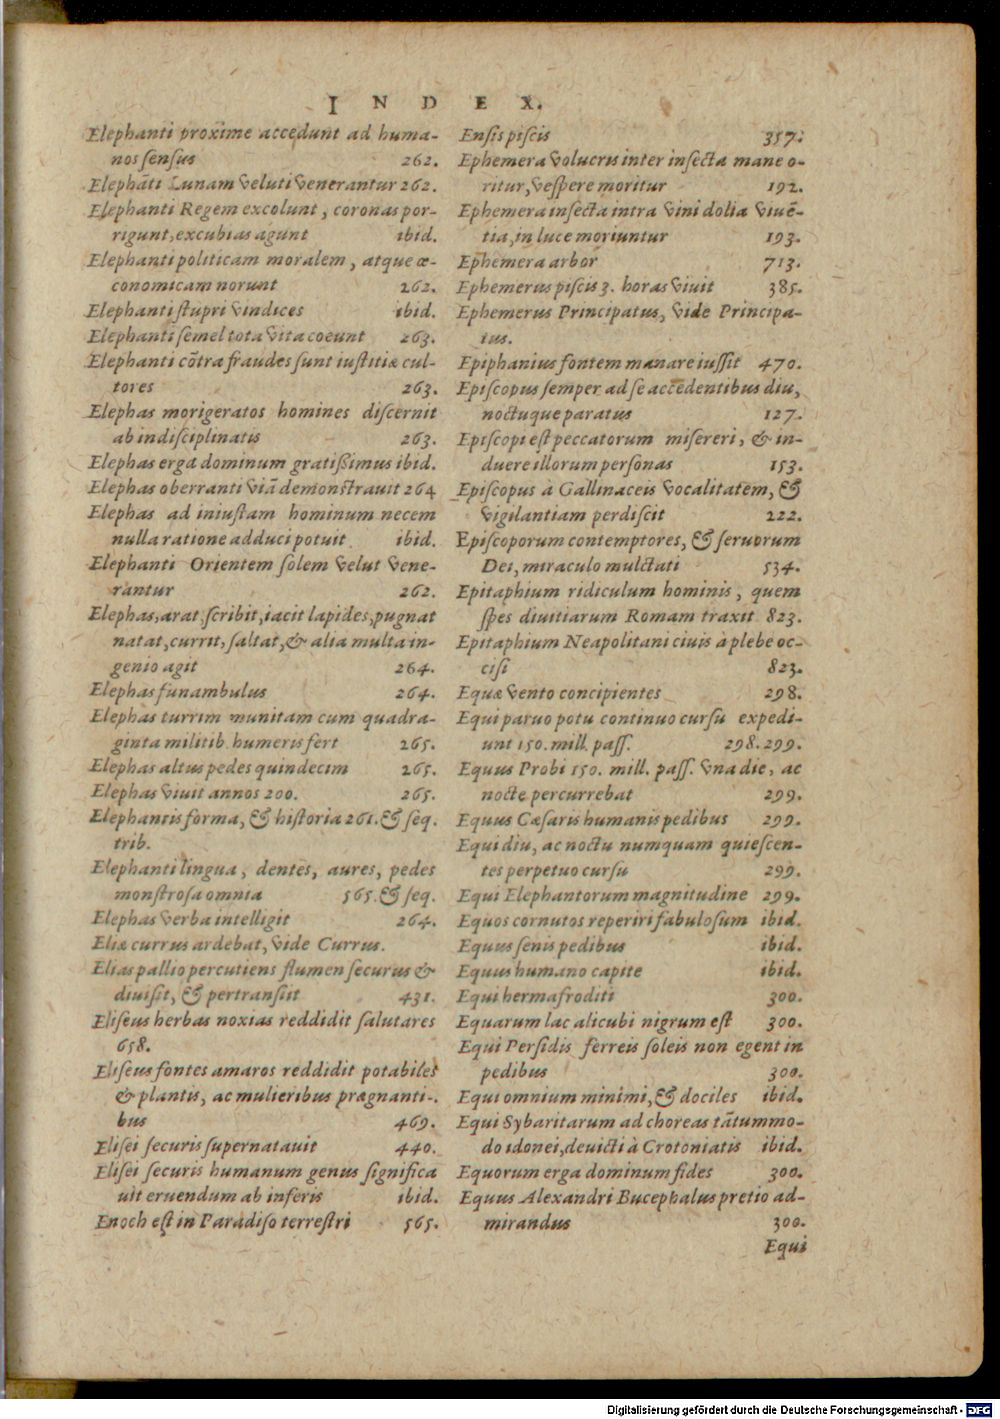 INDEX.
Elephanti proxime accedunt ad huma-
nos ſenſus 262.
Elephāti Lunam veluti venerantur 262.
Elephanti Regem excolunt, coronas por-
rigunt, excubias agunt ibid.
Elephanti politicam moralem, atque œ-
conomicam norunt 262.
Elephanti ſtupri vindices ibid.
Elephanti ſemel tota vita coeunt 263.
Elephanti cōtra fraudes ſunt iuſtitiæ cul-
tores 263.
Elephas morigeratos homines diſcernit
ab indiſciplinatis 263.
Elephas erga dominum gratiſſimus ibid.
Elephas oberranti viā demonſtrauit 264
Elephas ad iniuſtam hominum necem
nulla ratione adduci potuit ibid.
Elephanti Orientem ſolem velut vene-
rantur 262.
Elephas, arat, ſcribit, iacit lapides, pugnat
natat, currit, ſaltat, & alia multa in-
genio agit 264.
Elephas funambulus 264.
Elephas turrim munitam cum quadra-
ginta militib. humeris fert 265.
Elephas altus pedes quindecim 265.
Elephas viuit annos 200. 265.
Elephantis forma, & hiſtoria 261. & ſeq.
trib.
Elephanti lingua, dentes, aures, pedes
monſtroſa omnia 565. & ſeq.
Elephas verba intelligit 264.
Eliæ currus ardebat, vide Currus.
Elias pallio percutiens flumen ſecurus &
diuiſit, & pertranſiit 431.
Eliſeus herbas noxias reddidit ſalutares
658.
Eliſeus fontes amaros reddidit potabiles
& plantis, ac mulieribus prægnanti-
bus 469.
Eliſei ſecuris ſupernatauit 440.
Eliſei ſecuris humanum genus ſignifica
uit eruendum ab inferis ibid.
Enoch eſt in Paradiſo terreſtri 565.
Enſis piſcis 357.
Ephemera volucris inter inſecta mane o-
ritur, veſpere moritur 192.
Ephemera inſecta intra vini dolia viuē-
tia, in luce moriuntur 193.
Ephemera arbor 713.
Ephemerus piſcis 3. horas viuit 385.
Ephemerus Principatus, vide Principa-
tus.
Epiphanius fontem manare iuſſit 470.
Epiſcopus ſemper ad ſe accedentibus diu,
noctuque paratus 127.
Epiſcopi eſt peccatorum miſereri, & in-
duere illorum perſonas 153.
Epiſcopus à Gallinaceis vocalitatem, &
vigilantiam perdiſcit 222.
Epiſcoporum contemptores, & ſeruorum
Dei, miraculo mulctati 534.
Epitaphium ridiculum hominis, quem
ſpes diuitiarum Romam traxit 823.
Epitaphium Neapolitani ciuis à plebe oc-
ciſi 823.
Equæ vento concipientes 298.
Equi paruo potu continuo curſu expedi-
unt 150. mill. paſſ. 298. 299.
Equus Probi 150. mill. paſſ. vna die, ac
nocte percurrebat 299.
Equus Cæſaris humanis pedibus 299.
Equi diu, ac noctu numquam quieſcen-
tes perpetuo curſu 299.
Equi Elephantorum magnitudine 299.
Equos cornutos reperiri fabuloſum ibid.
Equus ſenis pedibus ibid.
Equus humano capite ibid.
Equi hermafroditi 300.
Equarum lac alicubi nigrum eſt 300.
Equi Perſidis ferreis ſoleis non egent in
pedibus 300.
Equi omnium minimi, & dociles ibid.
Equi Sybaritarum ad choreas tātummo-
do idonei, deuicti à Crotoniatis ibid.
Equorum erga dominum fides 300.
Equus Alexandri Bucephalus pretio ad-
mirandus 300.
Equi
Digitalisierung gefördert durch die Deutsche Forschungsgemeinschaft - DFG